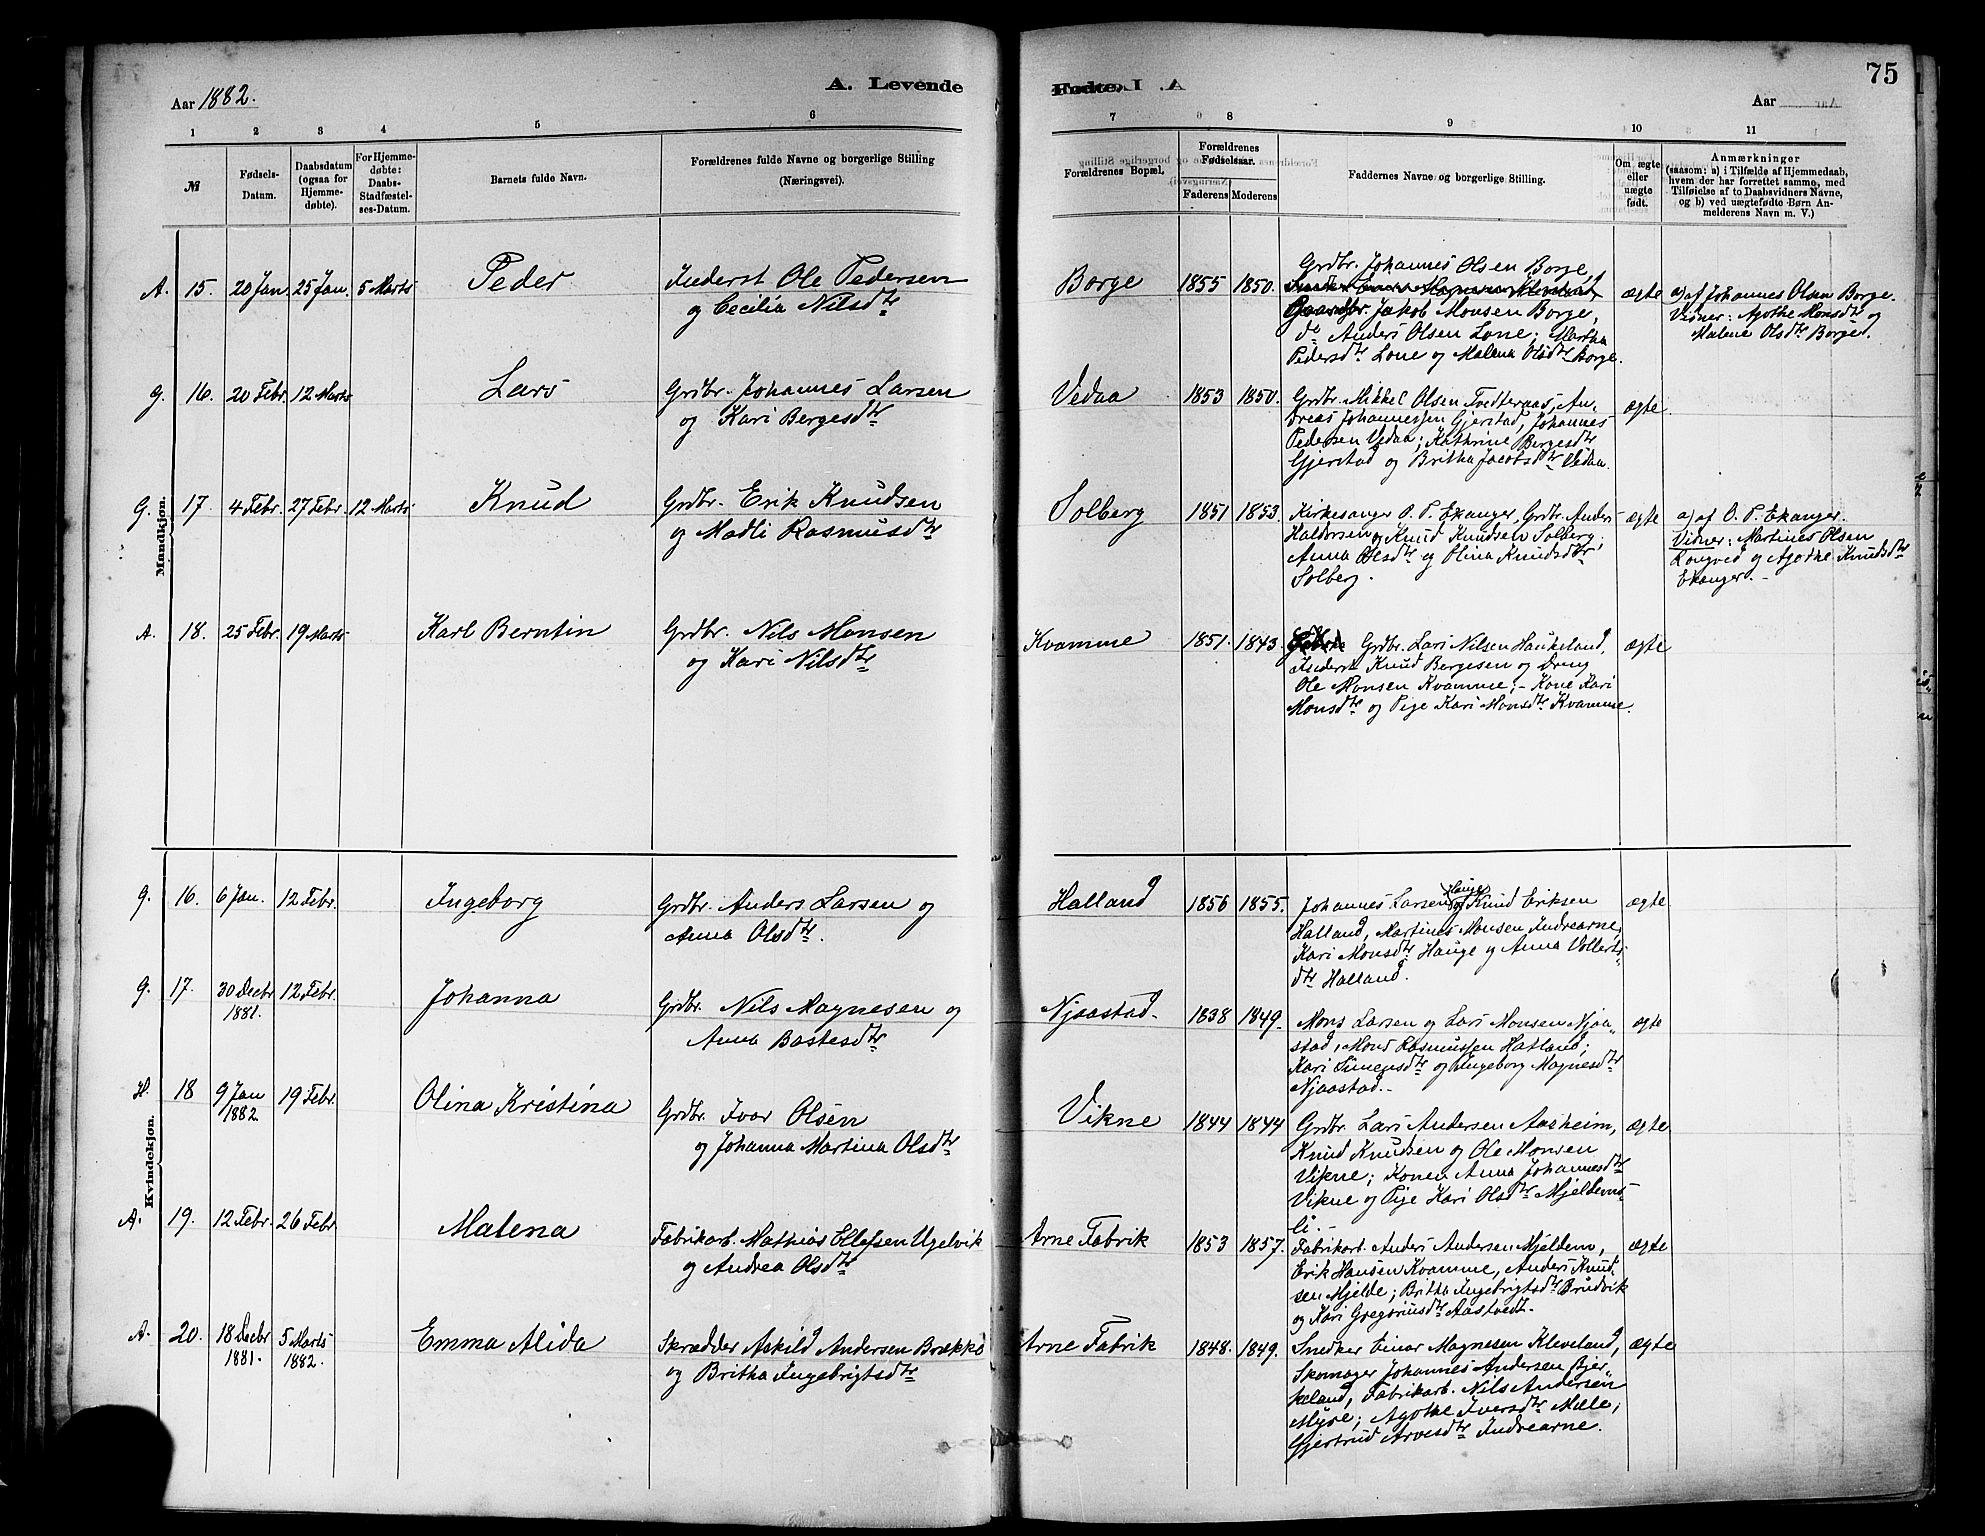 Aar 1882.
A. Levende
Fødte.
75
Aar
1 2 3 4 5 6
7 8 9 10 11
№
Fødsels-Datum.
Daabsdatum (ogsaa for Hjemmedøbte).
For Hjemmedøbte: Daabs-Stadfæstelses-Datum.
Barnets fulde Navn.
Forældrenes fulde Navne og borgerlige Stilling
(Næringsvei).
Forældrenes Bopæl.
Forældrenes Fødselsaar.
Faderens Moderens
Faddernes Navne og borgerlige Stilling.
Om ægte eller uægte født.
Anmærkninger
(saasom: a) i Tilfælde af Hjemmedaab,
hvem der har forrettet samme, med
Tilføielse af to Daabsvidners Navne,
og b) ved uægtefødte Børn Anmelderens Navn m. V.)
Mandkjøn.
A. 15. 20 Jan. 25 Jan. 5 Marts Peder
Inderst Ole Pedersen
og Cecilia Nilsdtr
Borge 1855 1850.
Grdbr. Johannes Olsen Borge,
Gaardbr. Jakob Monsen Borge,
do Anders Olsen Lone; Martha
Pedersdtr Lone og Malena Olsdtr Borge.
ægte
a) af Johannes Olsen Borge.
Vidner: Agothe Monsdtr og
Malene Olsdtr Borge.
G. 16. 20 Febr. 12 Marts Lars
Grdbr. Johannes Larsen
og Kari Bergesdtr
Vedaa 1853 1850.
Grdbr. Mikkel Olsen Tvedteraas, An-
dreas Johannessen Gjerstad, Johannes
Pedersen Vedaa; Kathrine Bergesdtr
Gjerstad og Britha Jacobsdtr Vedaa.
ægte
G. 17. 4 Febr. 27 Febr. 12 Marts Knud
Grdbr. Erik Knudsen
og Madli Rasmusdtr
Solberg 1851 1853.
Kirkesanger O. P. Ekanger, Grdbr. Anders
Haldorsen og Knud Knudsen Solberg;
Anna Olsdtr og Olina Knudsdtr
Solberg.
ægte
a) af O. P. Ekanger.
Vidner: Martines Olsen
Longved og Agothe Knudsdtr
Ekanger.-
A. 18. 25 Febr. 19 Marts Karl Berntin
Grdbr. Nils Monsen
og Kari Nilsdtr
Kvamme 1851. 1843.
Grdbr. Lars Nilsen Haukeland,
Inderst Knud Bergesen og Dreng
Ole Monsen Kvamme; - Kone Kari
Monsdtr og Pige Kari Monsdtr Kvamme.
ægte
Kvindekjøn.
G. 16. 6 Jan. 12 Febr. Ingeborg
Grdbr. Anders Larsen og
Anna Olsdtr.
Halland 1856 1855.
Johannes Larsen Hauge og Knud Eriksen
Halland, Martines Monsen Indrearne,
Kari Monsdtr Hauge og Anna Vollerts-
dtr Halland.
ægte
G. 17. 30 Decbr 1881. 12 Febr. Johanna
Grdbr. Nils Magnesen og
Anna Bastesdtr
Njaastad. 1838 1849.
Mons Larsen og Lars Monsen Njaa-
stad, Mons Rasmussen Hatland;
Kari Simensdtr og Ingeborg Magnesdtr
Njaastad.-
ægte
H. 18 9 Jan 1882 19 Febr. Olina Kristina
Grdbr. Ivar Olsen
og Johanna Martina Olsdtr
Vikne 1844 1844
Grdbr. Lars Andersen Aasheim,
Knud Knudsen og Ole Monsen
Vikne; Konen Anna Johannesdtr
Vikne og Pige Kari Olsdtr Mjeldems-
li.-
ægte
A. 19. 12 Febr. 26 Febr Malena
Fabrikarb. Mathias Ellefsen Ugelvik
og Andrea Olsdtr
Arne Fabrik 1853 1857.
Fabrikarb. Anders Andersen Mjeldem,
Erik Hansen Kvamme, Anders Knud-
sen Mjelde; Britha Ingebrigtsdtr Brudvik
og Kari Gregoriusdtr Aastvedt.
ægte
A. 20. 18 Decbr 1881. 5 Marts 1882. Emma Alida
Skrædder Askild Andersen Brække
og Britha Ingebrigtsdtr
Arne Fabrik 1848. 1849.
Snedker Einar Magnesen Kleveland,
Skomager Johannes Andersen Bjer-
keland, Fabrikarb. Nils Andersen
Myre; Agothe Iversdtr Mæle,
Gjertrud Arvesdtr Indrearne.
ægte